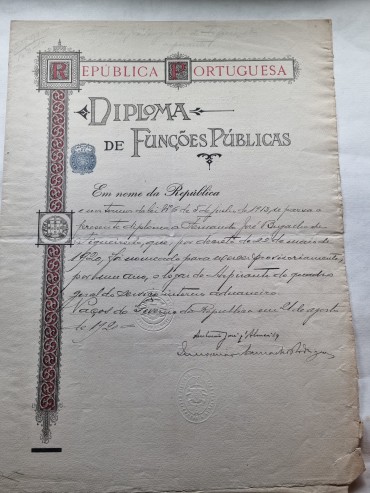 REPÚBLICA PORTUGUESA
DIPLOMA
DE FUNÇÕES PÚBLICAS
Em nome da República
e em termos da lei Nº 6 de 5 de julho de 1913, se passa o
presente diploma a Fernando José
de Figueiredo, que, por decreto de 22 de maio de
1920, foi nomeado para exercer provisoriamente,
por um ano, o logar de Aspirante do quadro
geral do serviço interno aduaneiro
Paços do Governo da Republica em 21 de agosto
de 1920
Antonio José d'Almeida